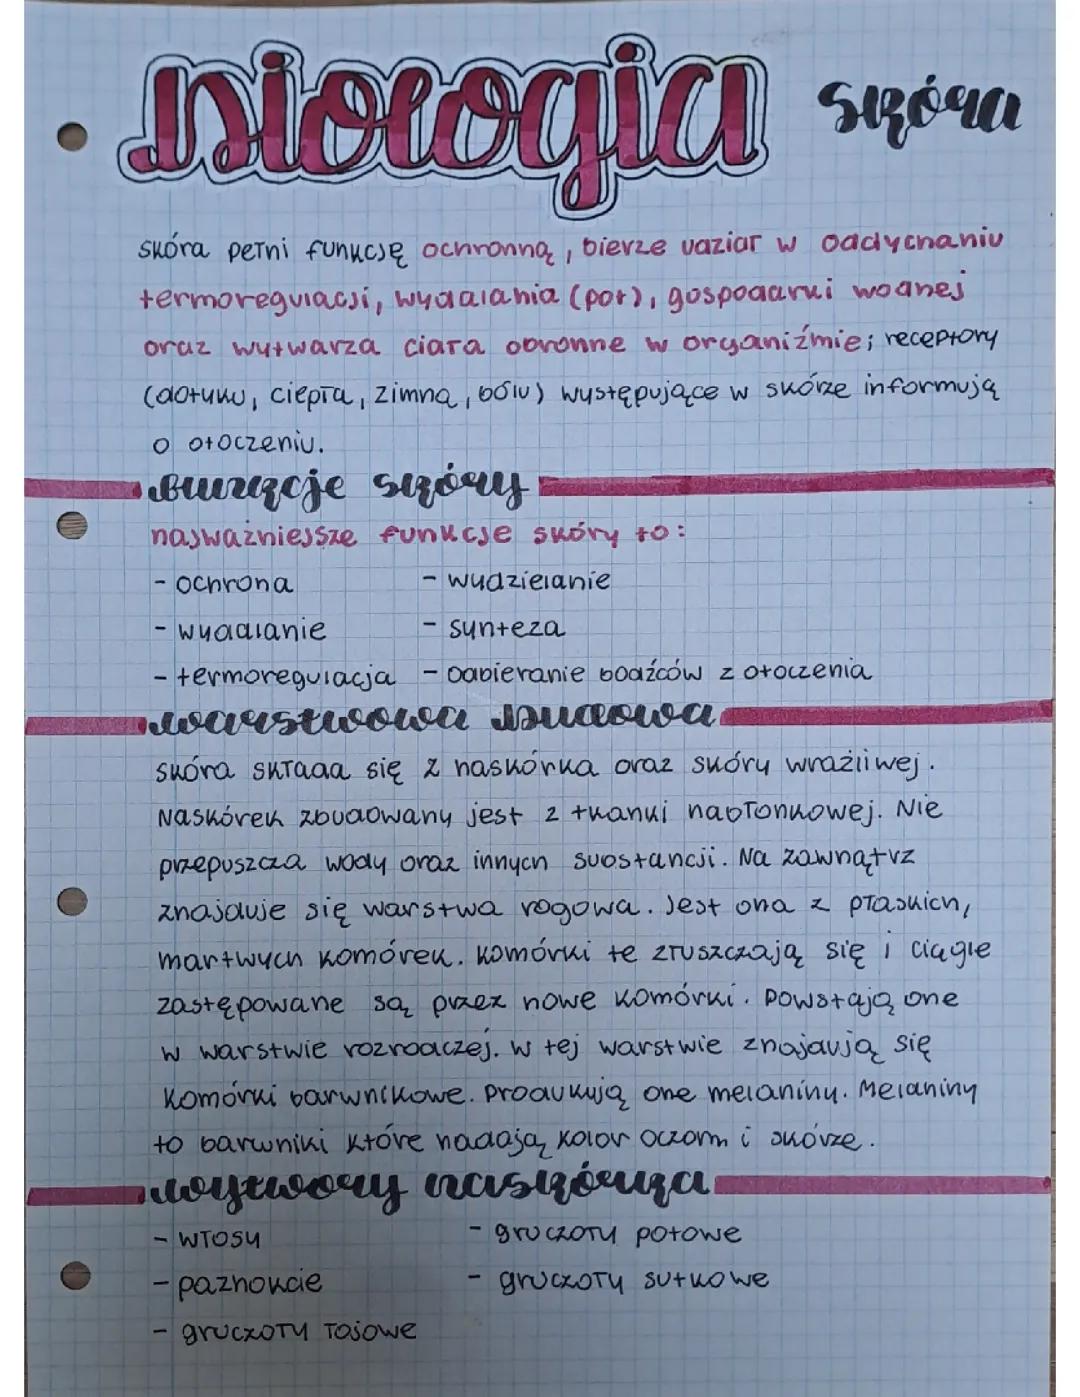 Biologia skóra
skóra pełni funkcję ochronną, bierze udział w oddychaniu
termoregulacji, wydalania (pot), gospodarki wodnej
oraz wytwarza ciała obronne w organiźmie; receptory
(dotyku, ciepła, zimna, bólu) występujące w skórze informują
o otoczeniu.
Funkcje skóry
najważniejsze funkcje skóry to:
- ochrona - wydzielanie
- wydalanie - synteza
- termoregulacja - odbieranie bodźców z otoczenia
warstwowa budowa
skóra składa się z naskórka oraz skóry wrażliwej.
Naskórek zbudowany jest z tkanki nabłonkowej. Nie
przepuszcza wody oraz innych substancji. Na zewnątrz
znajduje się warstwa rogowa. Jest ona z płaskich,
martwych komórek. Komórki te złuszczają się i ciągle
zastępowane są przez nowe komórki. Powstają one
w warstwie rozrodczej. W tej warstwie znajdują się
komórki barwnikowe. Produkują one melaniny. Melaniny
to barwniki które nadają kolor oczom i skórze.
wytwory naskórka
- włosy - gruczoły potowe
- paznokcie - gruczoły sutkowe
- gruczoły łojowe